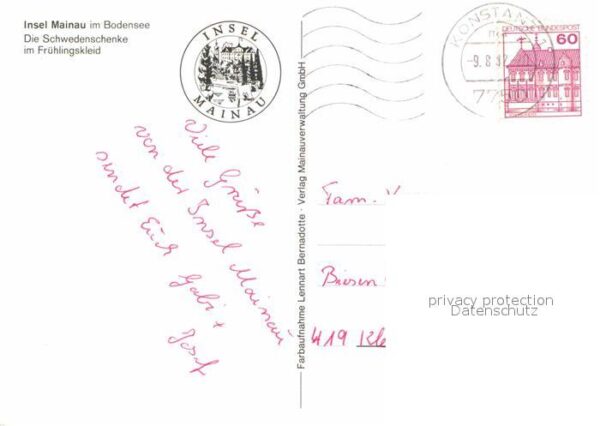 Insel Mainau im Bodensee
Die Schwedenschenke
im Frühlingskleid
INSEL
MAINAU
KONSTANZ
-9.8.82
775
DEUTSCHE BUNDESPOST
60
Viele Grüße
von der Insel Mainau
sendet Euch Gabi +
Josef
Farbaufnahme Lennart Bernadotte · Verlag Mainauverwaltung GmbH
Fam.
Biesen
419 Kle
privacy protection
Datenschutz